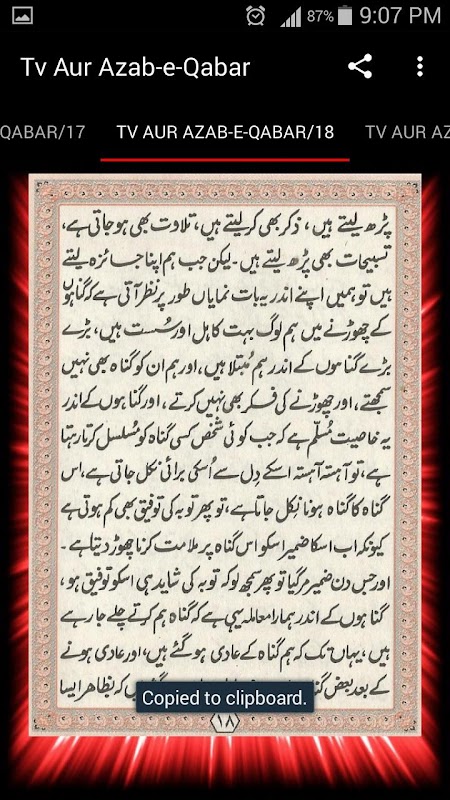 87% 9:07 PM
Tv Aur Azab-e-Qabar
QABAR/17 TV AUR AZAB-E-QABAR/18 TV AUR AZ
پڑھ لیتے ہیں، ذکر بھی کر لیتے ہیں، تلاوت بھی ہو جاتی ہے،
تسبیحات بھی پڑھ لیتے ہیں۔ لیکن جب ہم اپنا جائزہ لیتے
ہیں تو ہمیں اپنے اندر یہ بات نمایاں طور پر نظر آتی ہے کہ گناہوں
کے چھوڑنے میں ہم لوگ بہت کاہل اور سُست ہیں، بڑے
بڑے گناہوں کے اندر ہم مُبتلا ہیں، اور ہم ان کو گناہ بھی نہیں
سمجھتے، اور چھوڑنے کی فکر بھی نہیں کرتے، اور گناہوں کے اندر
یہ خاصیت مُسلّم ہے کہ جب کوئی شخص کسی گناہ کو مُسلسل کرتا رہتا
ہے، تو آہستہ آہستہ اسکے دِل سے اُسکی برائی نکل جاتی ہے، اس
گناہ کا گناہ ہونا نِکل جاتا ہے، تو پھر توبہ کی توفیق بھی کم ہوتی ہے
کیونکہ اب اسکا ضمیر اسکو اس گناہ پر ملامت کرنا چھوڑ دیتا ہے۔
اور جس دن ضمیر مر گیا تو پھر سمجھ لو کہ توبہ کی شاید ہی اسکو توفیق ہو،
گناہوں کے اندر ہمارا معاملہ یہی ہے کہ گناہ ہم کرتے چلے جا رہے
ہیں، یہاں تک کہ ہم گناہ کے عادی ہو گئے ہیں، اور عادی ہونے
کے بعد بعض کہ بظاھر ایسا
Copied to clipboard.
۱۸